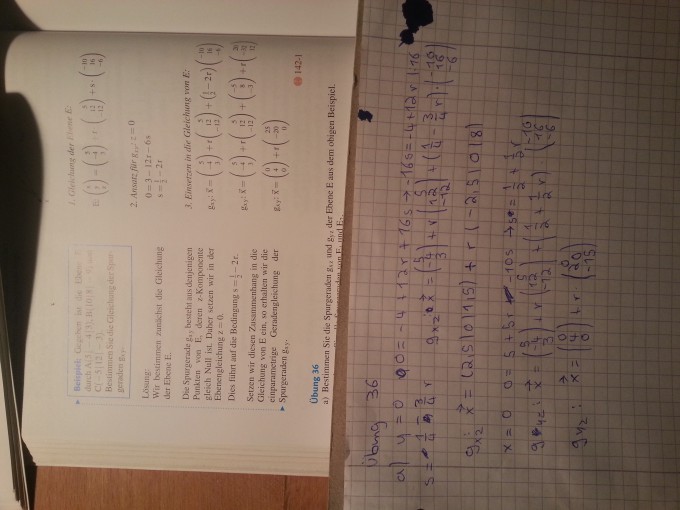 Beispiel: Gegeben ist die Ebene E
durch A(5|–4|3), B(10|8|–9) und
C(–5|12|–3).
Bestimmen Sie die Gleichung der Spur-
geraden g_xy.
Lösung:
Wir bestimmen zunächst die Gleichung
der Ebene E.
Die Spurgerade g_xy besteht aus denjenigen
Punkten von E, deren z-Komponente
gleich Null ist. Daher setzen wir in der
Ebenengleichung z = 0.
Dies führt auf die Bedingung s = 1/2 – 2r.
Setzen wir diesen Zusammenhang in die
Gleichung von E ein, so erhalten wir die
einparametrige Geradengleichung der
Spurgeraden g_xy.
1. Gleichung der Ebene E:
E: x = (5 –4 3) + r · (5 12 –12) + s · (–10 16 –6)
2. Ansatz für g_xy: z = 0
0 = 3 – 12r – 6s
s = 1/2 – 2r
3. Einsetzen in die Gleichung von E:
g_xy: x = (5 –4 3) + r (5 12 –12) + (1/2 – 2r) (–10 16 –6)
g_xy: x = (5 –4 3) + r (5 12 –12) + (–5 8 –3) + r (20 –32 12)
g_xy: x = (0 4 0) + r (25 –20 0)
142-1
Übung 36
a) Bestimmen Sie die Spurgeraden g_xz und g_yz der Ebene E aus dem obigen Beispiel.
Übung 36
a) y = 0 0 = -4 + 12r + 16s → -16s = -4 + 12r |:16
s = 1/4 - 3/4 r g_xz: x = (5 -4 3) + r (5 12 -12) + (1/4 - 3/4 r) · (-10 16 -6)
g_xz: x = (2,5|0|1,5) + r (-2,5|0|8)
x = 0 0 = 5 + 5r - 10s → s = 1/2 + 1/2 r
g_yz: x = (5 -4 3) + r (5 12 -12) + (1/2 + 1/2 r) · (-10 16 -6)
g_yz: x = (0 4 0) + r (0 20 -15)